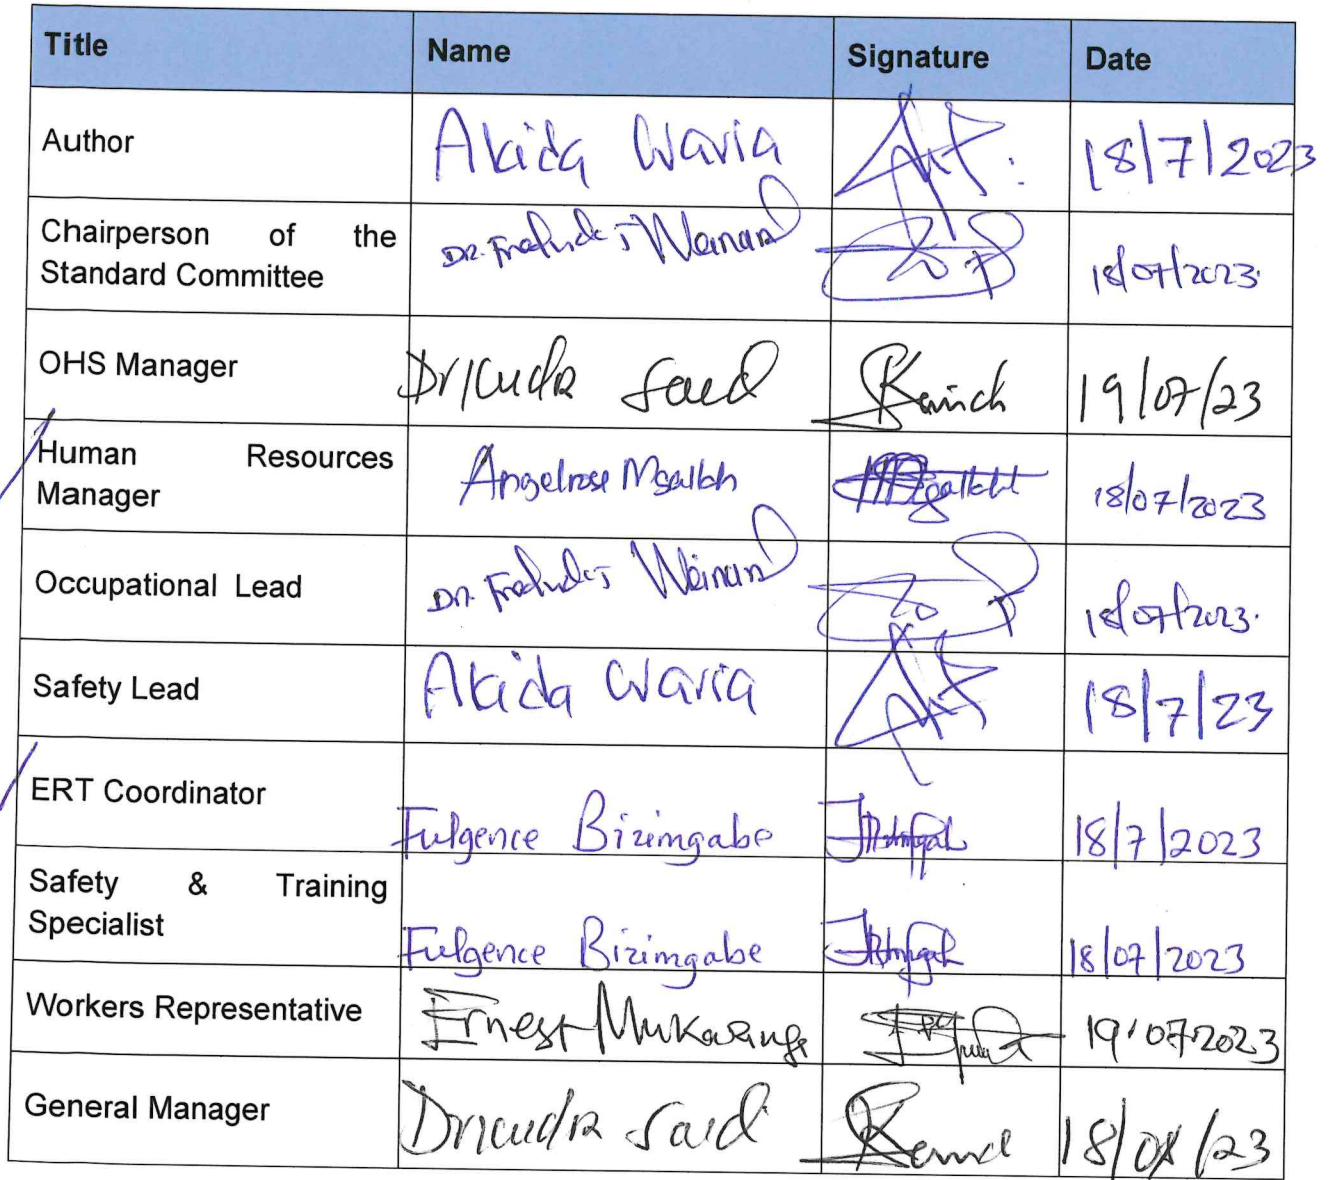 Title Name Signature Date
Author Akida Waria 18/7/2023
Chairperson of the
Standard Committee Dr. Weinand 18/07/2023
OHS Manager Said 19/07/23
Human Resources
Manager Angelrose 18/07/2023
Occupational Lead Dr. Weinand 18/07/2023
Safety Lead Akida Waria 18/7/23
ERT Coordinator Fulgence Bizimgabe 18/7/2023
Safety & Training
Specialist Fulgence Bizimgabe 18/07/2023
Workers Representative Ernest 19.07.2023
General Manager Said 18/ /23